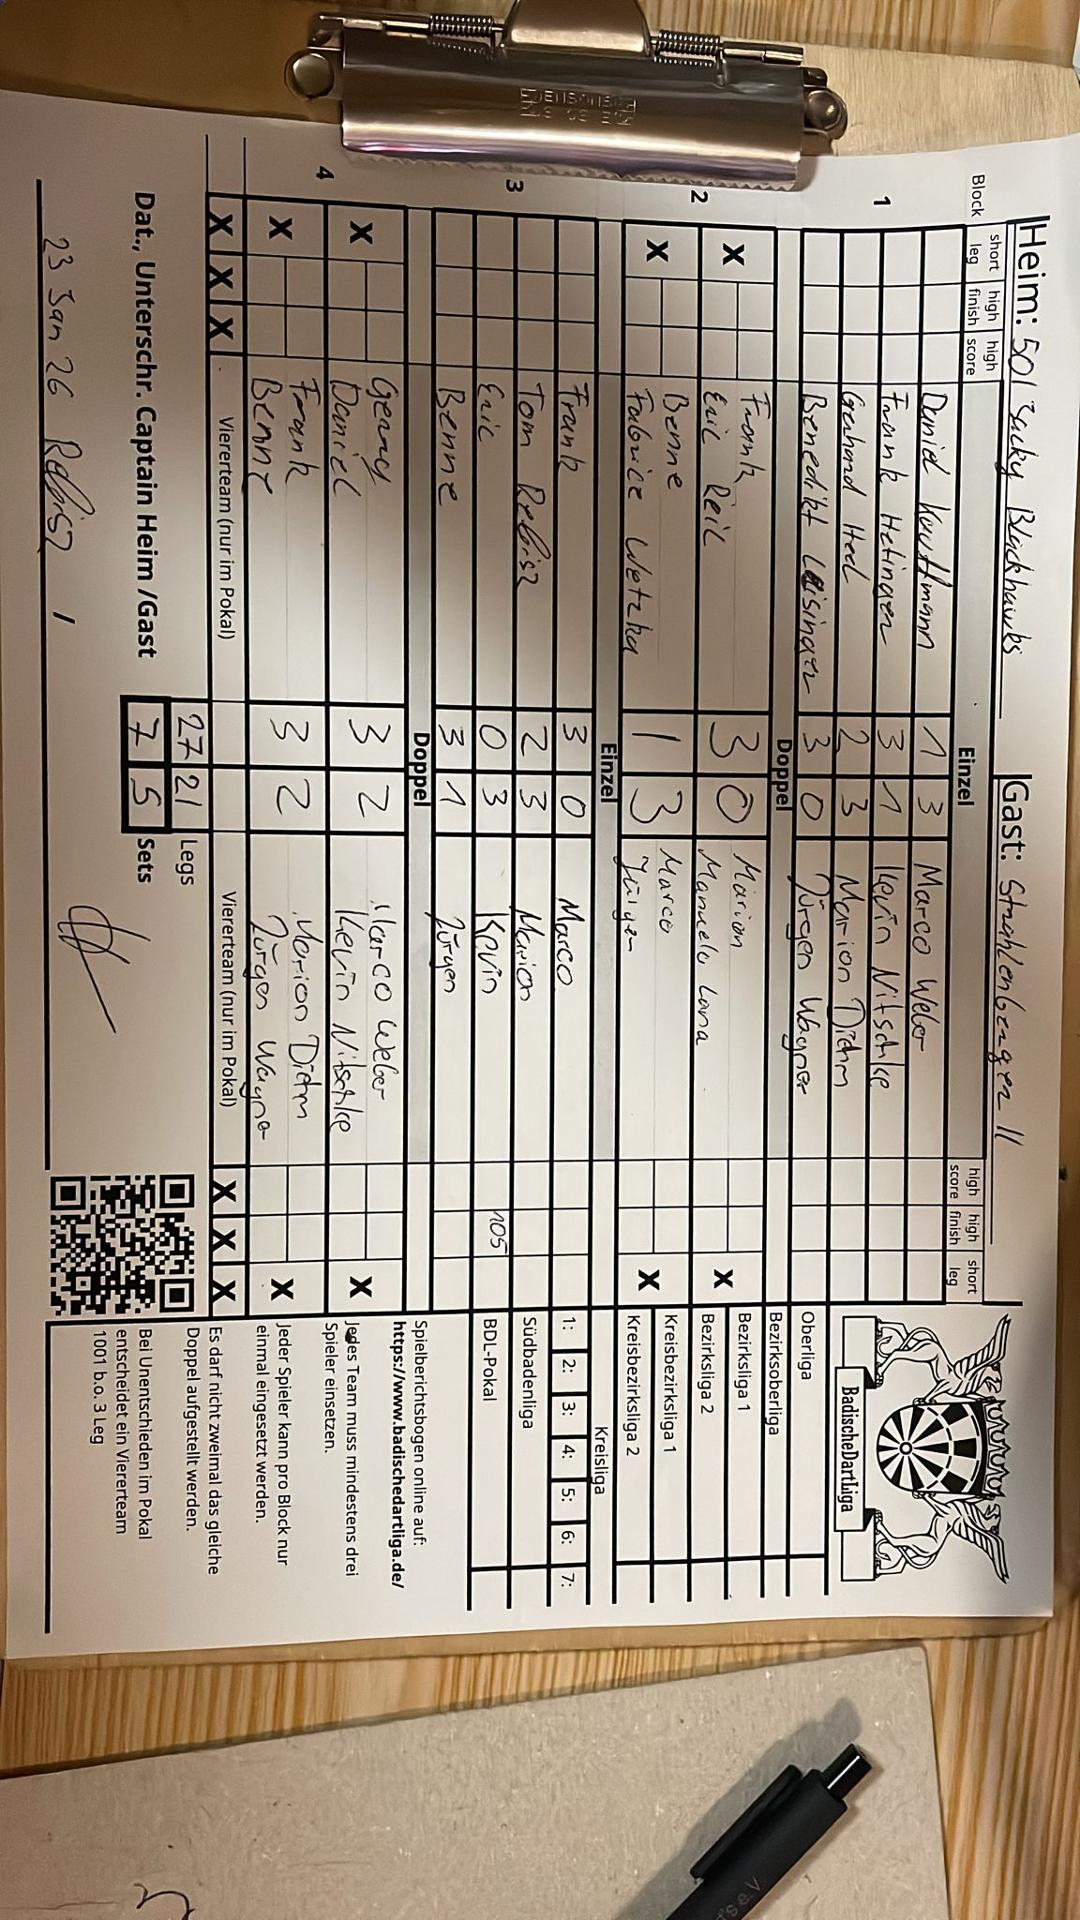 Heim: 501 Sucky Blackhawks Gast: Strahlenberger II
Block short leg high finish high score Einzel high score high finish short leg
1 Daniel Kauffmann 1 3 Marco Weber
Frank Hetinger 3 1 Kevin Nitschke
Gerhard Heel 2 3 Marion Diehm
Benedikt Leisinger 3 0 Jürgen Wagner
Doppel
2 X Frank 3 0 Marion X
Eric Reil Manuela Lana
X Benne 1 3 Marco X
Fabrice Wetzka Jürgen
Einzel
3 Frank 3 0 Marco
Tom Rebisz 2 3 Marion
Eric 0 3 Kevin 105
Benne 3 1 Jürgen
Doppel
4 X Gerry 3 2 Marco Weber X
Daniel Kevin Nitschke
X Frank 3 2 Marion Diehm X
Benne Jürgen Wagner
X X X Viererteam (nur im Pokal) Viererteam (nur im Pokal) X X X
27 21 Legs
Dat., Unterschr. Captain Heim /Gast 7 5 Sets
23 Jan 26 Rebisz /
BadischeDartLiga
Oberliga
Bezirksoberliga
Bezirksliga 1
Bezirksliga 2
Kreisbezirksliga 1
Kreisbezirksliga 2
Kreisliga
1: 2: 3: 4: 5: 6: 7:
Südbadenliga
BDL-Pokal
Spielberichtsbogen online auf:
https://www.badischedartliga.de/
Jedes Team muss mindestens drei
Spieler einsetzen.
Jeder Spieler kann pro Block nur
einmal eingesetzt werden.
Es darf nicht zweimal das gleiche
Doppel aufgestellt werden.
Bei Unentschieden im Pokal
entscheidet ein Viererteam
1001 b.o. 3 Leg